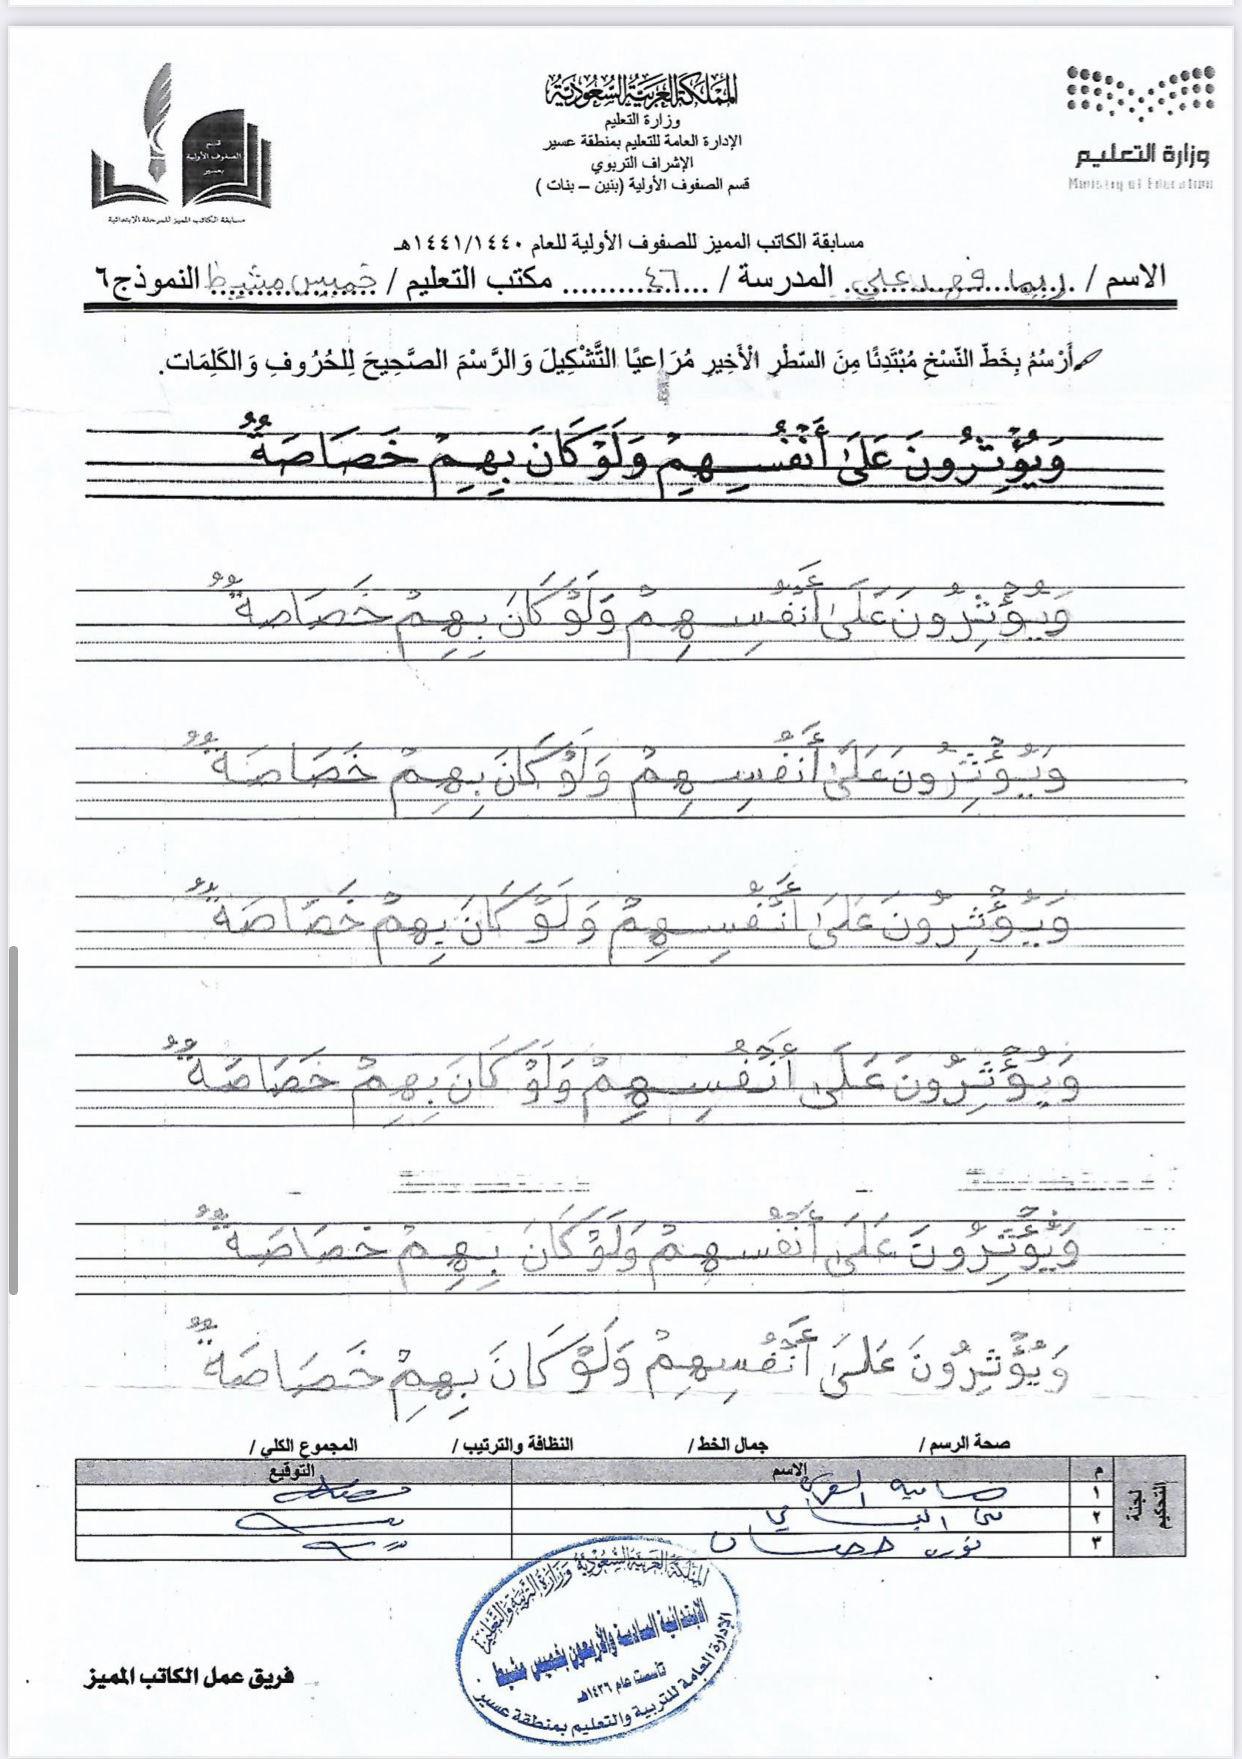 المملكة العربية السعودية
وزارة التعليم
الإدارة العامة للتعليم بمنطقة عسير
الإشراف التربوي
قسم الصفوف الأولية (بنين – بنات )
وزارة التعليم
Ministry of Education
قسم
الصفوف الأولية
بعسير
مسابقة الكاتب المميز للمرحلة الابتدائية
مسابقة الكاتب المميز للصفوف الأولية للعام ١٤٤١/١٤٤٠هـ
الاسم / ريما فهد علي المدرسة / ٤٦ مكتب التعليم / خميس مشيط النموذج ٦
أَرْسُمُ بِخَطِّ النَّسْخِ مُبْتَدِئًا مِنَ السَّطْرِ الْأَخِيرِ مُرَاعِيًا التَّشْكِيلَ وَالرَّسْمَ الصَّحِيحَ لِلحُرُوفِ وَالكَلِمَات.
وَيُؤْثِرُونَ عَلَىٰ أَنْفُسِهِمْ وَلَوْ كَانَ بِهِمْ خَصَاصَةٌ
وَيُؤْثِرُونَ عَلَىٰ أَنْفُسِهِمْ وَلَوْ كَانَ بِهِمْ خَصَاصَةٌ
وَيُؤْثِرُونَ عَلَىٰ أَنْفُسِهِمْ وَلَوْ كَانَ بِهِمْ خَصَاصَةٌ
وَيُؤْثِرُونَ عَلَىٰ أَنْفُسِهِمْ وَلَوْ كَانَ بِهِمْ خَصَاصَةٌ
وَيُؤْثِرُونَ عَلَىٰ أَنْفُسِهِمْ وَلَوْ كَانَ بِهِمْ خَصَاصَةٌ
وَيُؤْثِرُونَ عَلَىٰ أَنْفُسِهِمْ وَلَوْ كَانَ بِهِمْ خَصَاصَةٌ
وَيُؤْثِرُونَ عَلَىٰ أَنْفُسِهِمْ وَلَوْ كَانَ بِهِمْ خَصَاصَةٌ
صحة الرسم / جمال الخط / النظافة والترتيب / المجموع الكلي /
لجنة التحكيم
م الاسم التوقيع
١
٢
٣
المملكة العربية السعودية وزارة التربية والتعليم
الابتدائية السادسة والأربعون بخميس مشيط
تأسست عام ١٤٢٦هـ
الإدارة العامة للتربية والتعليم بمنطقة عسير
فريق عمل الكاتب المميز